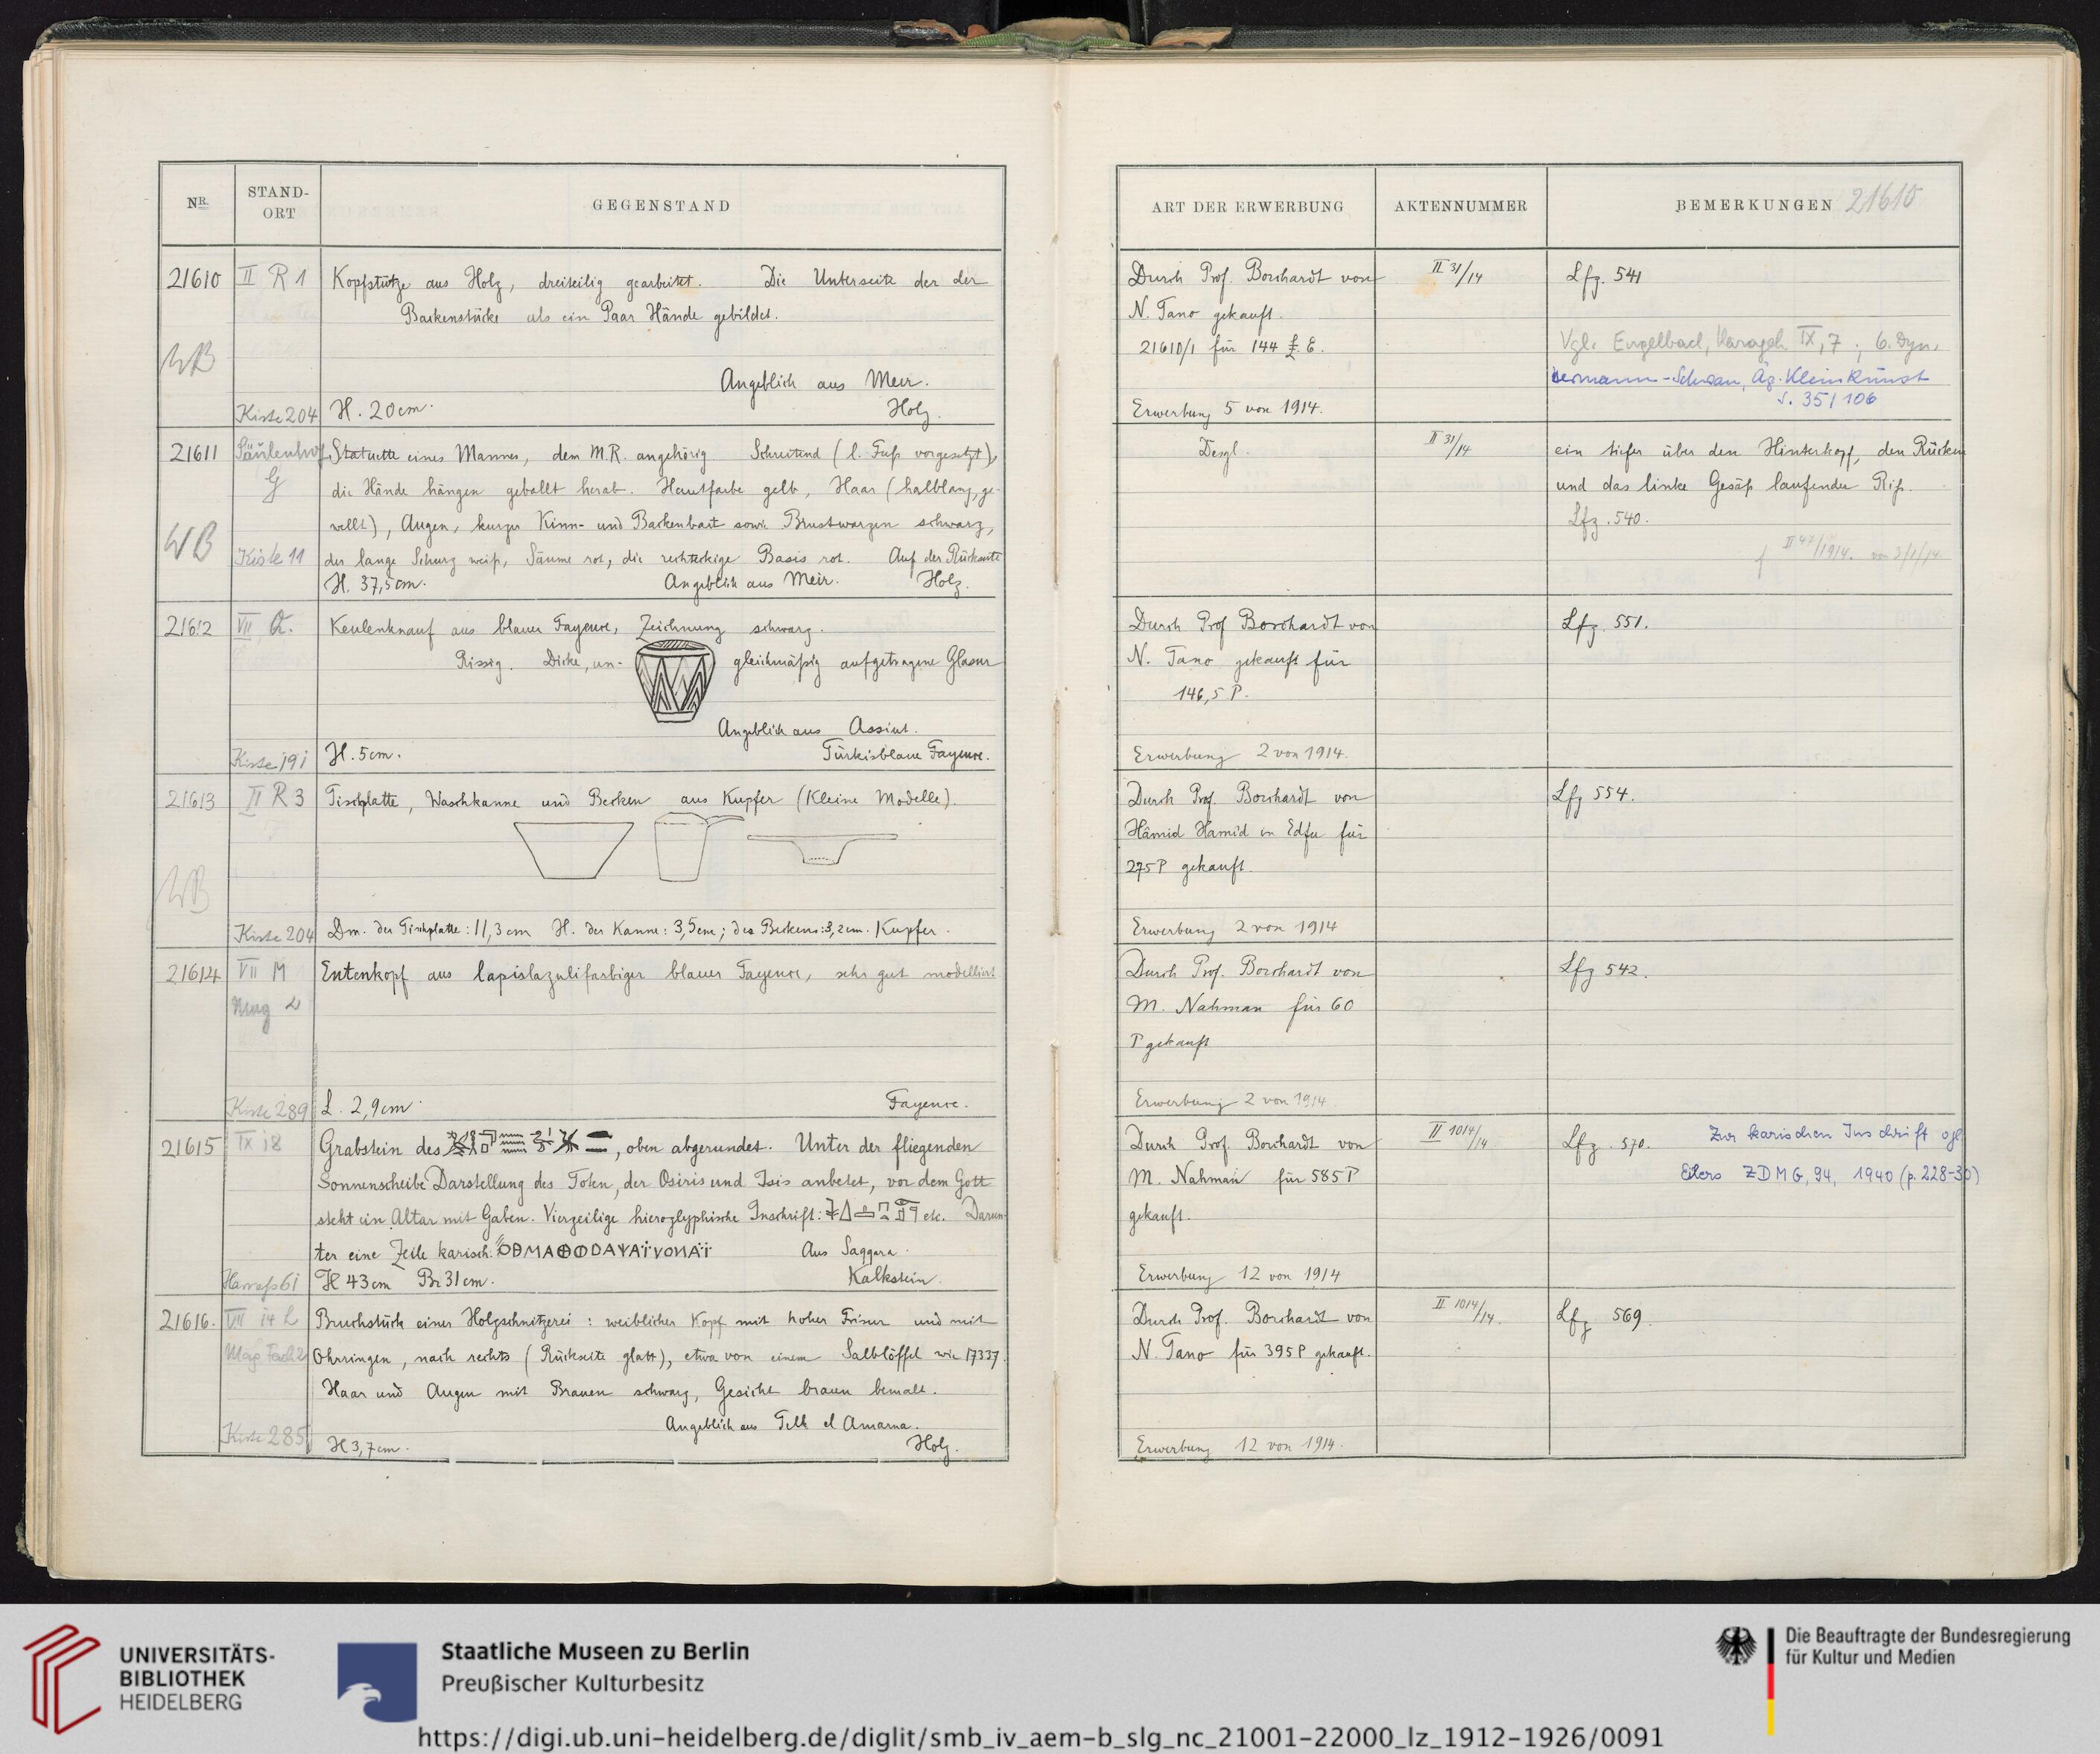 NR.
STAND-
ORT
GEGENSTAND
21610 II R 1 Kopfstütze aus Holz, dreiteilig gearbeitet. Die Unterseite der der
Backenstücke als ein Paar Hände gebildet.
WB
Angeblich aus Meir.
Kiste 204 H. 20cm. Holz.
21611 Säulenhof Statuette eines Mannes, dem M.R. angehörig Schreitend (l. Fuß vorgesetzt),
G die Hände hängen geballt herab. Hautfarbe gelb, Haar (halblang, ge-
WB wellt), Augen, kurzer Kinn- und Backenbart sowie Brustwarzen schwarz,
Kiste 11 der lange Schurz weiß, Säume rot, die rechteckige Basis rot. Auf der Rückseite
H. 37,5cm. Angeblich aus Meir. Holz.
21612 VII Q. Keulenknauf aus blauer Fayence, Zeichnung schwarz.
Rissig. Dicke, un- gleichmäßig aufgetragene Glasur
Angeblich aus Assiut.
Kiste 191 H. 5cm. Türkisblaue Fayence.
21613 II R 3 Tischplatte, Waschkanne und Becken aus Kupfer (Kleine Modelle).
WB
Kiste 204 Dm. der Tischplatte: 11,3cm H. der Kanne: 3,5cm; des Beckens: 3,2cm. Kupfer.
21614 VII M Entenkopf aus lapislazulifarbiger blauer Fayence, sehr gut modelliert
Mag 2
Kiste 289 L. 2,9cm. Fayence.
21615 IX i8 Grabstein des , oben abgerundet. Unter der fliegenden
Sonnenscheibe Darstellung des Toten, der Osiris und Isis anbetet, vor dem Gott
steht ein Altar mit Gaben. Vierzeilige hieroglyphische Inschrift: etc. Darun-
ter eine Zeile karisch: Aus Saqqara.
61 H 43cm Br 31cm. Kalkstein.
21616. VII i4 L Bruchstück einer Holzschnitzerei: weiblicher Kopf mit hoher Frisur und mit
Mag Fach 2 Ohrringen, nach rechts (Rückseite glatt), etwa von einem Salblöffel wie 17337.
Haar und Augen mit Brauen schwarz, Gesicht braun bemalt.
Angeblich aus Tell el Amarna.
Kiste 285 H 3,7cm. Holz.
ART DER ERWERBUNG
AKTENNUMMER
BEMERKUNGEN 21610
Durch Prof. Borchardt von II 31/14 Lfz. 541
N. Tano gekauft.
21610/1 für 144 £. E. Vgl. Engelbach, Harageh IX, 7; 6. Dyn.
Hermann-Schwan, Äg. Kleinkunst
S. 35/106
Erwerbung 5 von 1914.
Desgl. II 31/14 ein tiefer über den Hinterkopf, den Rücken
und das linke Gesäß laufender Riß.
Lfz. 540.
II 47/1914. von 2/1/14
Durch Prof Borchardt von Lfz. 551.
N. Tano gekauft für
146,5 P.
Erwerbung 2 von 1914.
Durch Prof. Borchardt von Lfz 554.
Hâmid Hamid in Edfu für
275 P gekauft.
Erwerbung 2 von 1914
Durch Prof. Borchardt von Lfz 542.
M. Nahman für 60
P gekauft
Erwerbung 2 von 1914.
Durch Prof. Borchardt von II 1014/14 Lfz. 570. Zur karischen Inschrift vgl.
M. Nahman für 585 P Eilers ZDMG, 94, 1940 (p. 228-30)
gekauft.
Erwerbung 12 von 1914
Durch Prof. Borchardt von II 1014/14. Lfz 569.
N. Tano für 395 P gekauft.
Erwerbung 12 von 1914.
UNIVERSITÄTS-
BIBLIOTHEK
HEIDELBERG
Staatliche Museen zu Berlin
Preußischer Kulturbesitz
Die Beauftragte der Bundesregierung
für Kultur und Medien
https://digi.ub.uni-heidelberg.de/diglit/smb_iv_aem-b_slg_nc_21001-22000_lz_1912-1926/0091